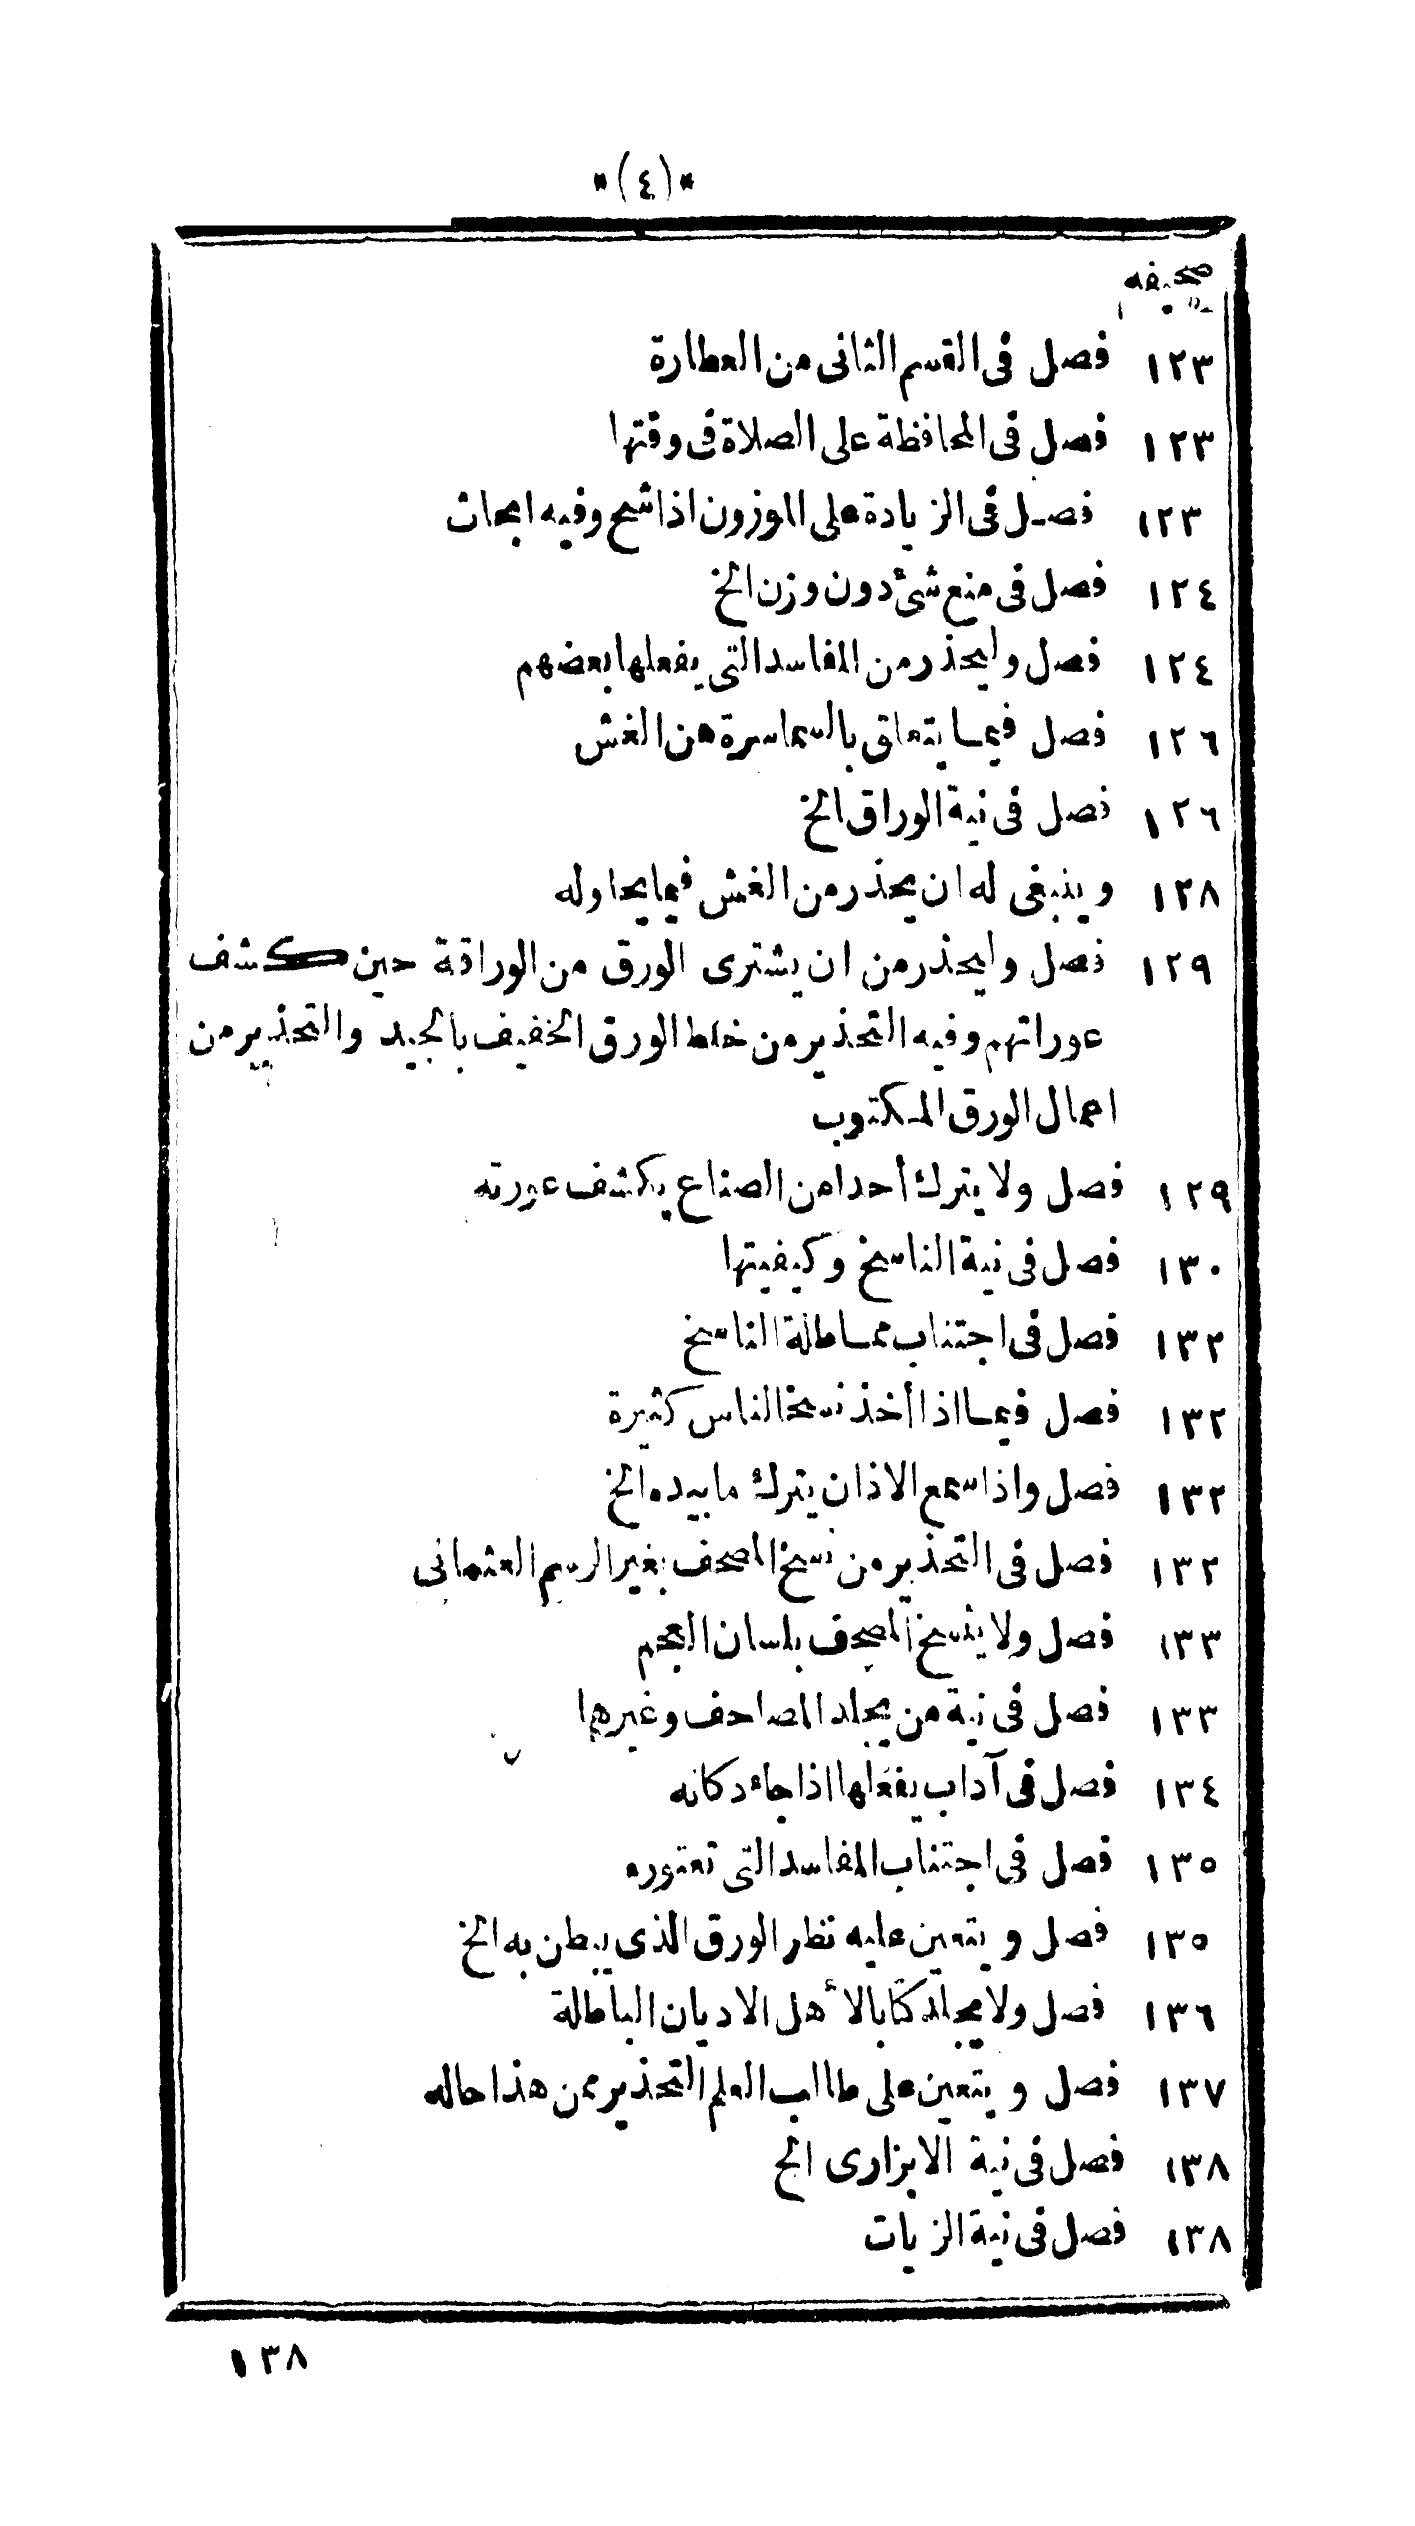 *(٤)*
صحيفه
١٢٣ فصل فى القسم الثانى من العطارة
١٢٣ فصل فى المحافظة على الصلاة فى وقتها
١٢٣ فصل فى الزيادة على الموزون اذا شح وفيه ابحاث
١٢٤ فصل فى منع شئ دون وزن الخ
١٢٤ فصل وليحذر من المفاسد التى يفعلها بعضهم
١٢٦ فصل فيما يتعلق بالسماسرة من الغش
١٢٦ فصل فى نية الوراق الخ
١٢٨ وينبغى له ان يحذر من الغش فيما يحاوله
١٢٩ فصل وليحذر من ان يشترى الورق من الوراقة حين كشف
عوراتهم وفيه التحذير من خلط الورق الخفيف بالجيد والتحذير من
اعمال الورق المكتوب
١٢٩ فصل ولا يترك أحدا من الصناع يكشف عورته
١٣٠ فصل فى نية الناسخ وكيفيتها
١٣٢ فصل فى اجتناب مماطلة الناسخ
١٣٢ فصل فيما اذا أخذ نسخا لناس كثيرة
١٣٢ فصل واذا سمع الاذان يترك ما بيده الخ
١٣٢ فصل فى التحذير من نسخ المصحف بغير الرسم العثمانى
١٣٣ فصل ولا ينسخ المصحف بلسان العجم
١٣٣ فصل فى نية من يجلد المصاحف وغيرها
١٣٤ فصل فى آداب يفعلها اذا جاء دكانه
١٣٥ فصل فى اجتناب المفاسد التى تعتوره
١٣٥ فصل ويتعين عليه نظر الورق الذى يبطن به الخ
١٣٦ فصل ولا يجلد كتابا لأهل الاديان الباطلة
١٣٧ فصل ويتعين على طالب العلم التحذير ممن هذا حاله
١٣٨ فصل فى نية الابزارى الخ
١٣٨ فصل فى نية الزيات
١٣٨